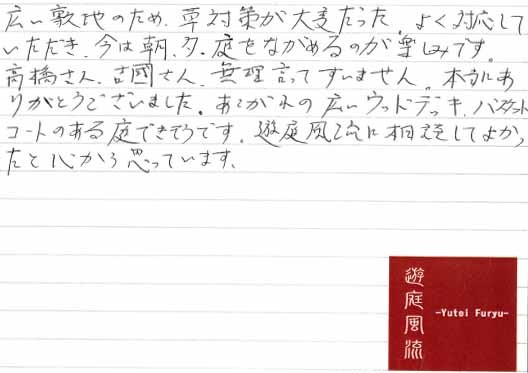 広い敷地のため、草対策が大変だった。よく対応して
いただき、今は朝、夕、庭をながめるのが楽しみです。
高橋さん、吉國さん、無理言ってすいません。本当にあ
りがとうございました。あこがれの広いウッドデッキ、バスケット
コートのある庭できそうです。遊庭風流に相談してよかっ
たと心から思っています。
遊庭風流
-Yutei Furyu-